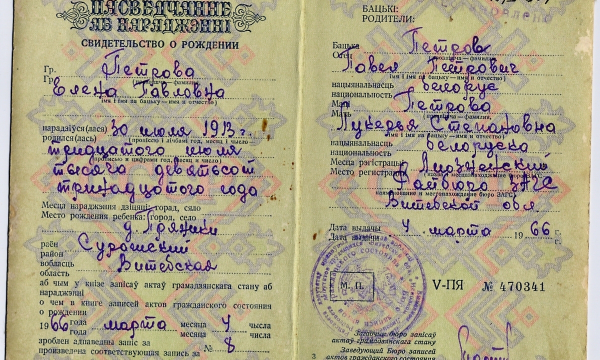 ПАСВЕДЧАННЕ
АБ НАРАДЖЭННІ
СВИДЕТЕЛЬСТВО О РОЖДЕНИИ
Гр. Петрова
Гр. Елена Павловна
імя і імя па бацьку—имя и отчество
нарадзіўся(лася) 30 июля 1913 г.
родился(лась)
(прописью и цифрами год, месяц и число)
тридцатого июля
тысяча девятьсот
тринадцатого года
Месца нараджэння дзіцяці: горад, сяло
Место рождения ребенка: город, село
д. Пряники
раён
район Сурожский
вобласць
область Витебская
аб чым у кнізе запісаў актаў грамадзянскага стану аб
нараджэнні
о чем в книге записей актов гражданского состояния
о рождении
1966 года марта месяца 4 числа
года месяца числа
зроблен адпаведны запіс за
произведена соответствующая запись за № 8
БАЦЬКІ:
РОДИТЕЛИ:
Бацька Петров
Отец
Павел Петрович
імя і імя па бацьку—имя и отчество
нацыянальнасць
национальность белорус
Маці
Мать Петрова
Лукерья Степановна
імя і імя па бацьку—имя и отчество
нацыянальнасць
национальность белоруска
Месца рэгістрацыі
Место регистрации
Райбюро ЗАГС
Витебской обл
Дата выдачы
Дата выдачи 4 марта 1966 г.
М. П.
V-ПЯ № 470341
Загадчык бюро запісаў
актаў грамадзянскага стану
Заведующий Бюро записей
актов гражданского состояния